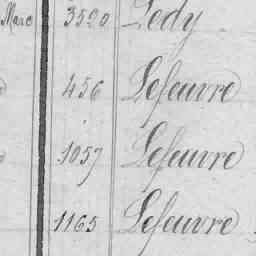 Marc 3520 Ledy
456 Lefeuvre
1057 Lefeuvre
1165 Lefeuvre